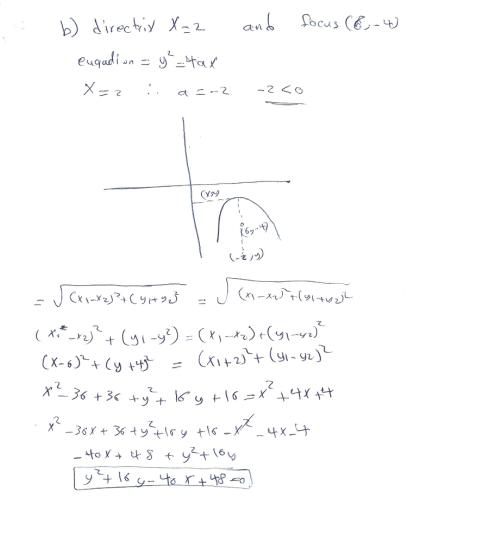 b) directrix X=2 and focus (6,-4)
euqadion = y²=4ax
X=2 ∴ a=-2 -2<0
(x,y)
(6,-4)
(-2,y)
= √(x₁-x₂)²+(y₁+y₂)² = √(x₁-x₂)²+(y₁+y₂)²
(x₁-x₂)²+(y₁-y²)=(x₁-x₂)+(y₁-y₂)²
(x-6)²+(y+4)² = (x₁+2)²+(y₁-y₂)²
x²-36+36+y²+16y+16=x²+4x+4
x²-36x+36+y²+16y+16-x²-4x-4
-40x+48+y²+16y
y²+16y-40x+48=0